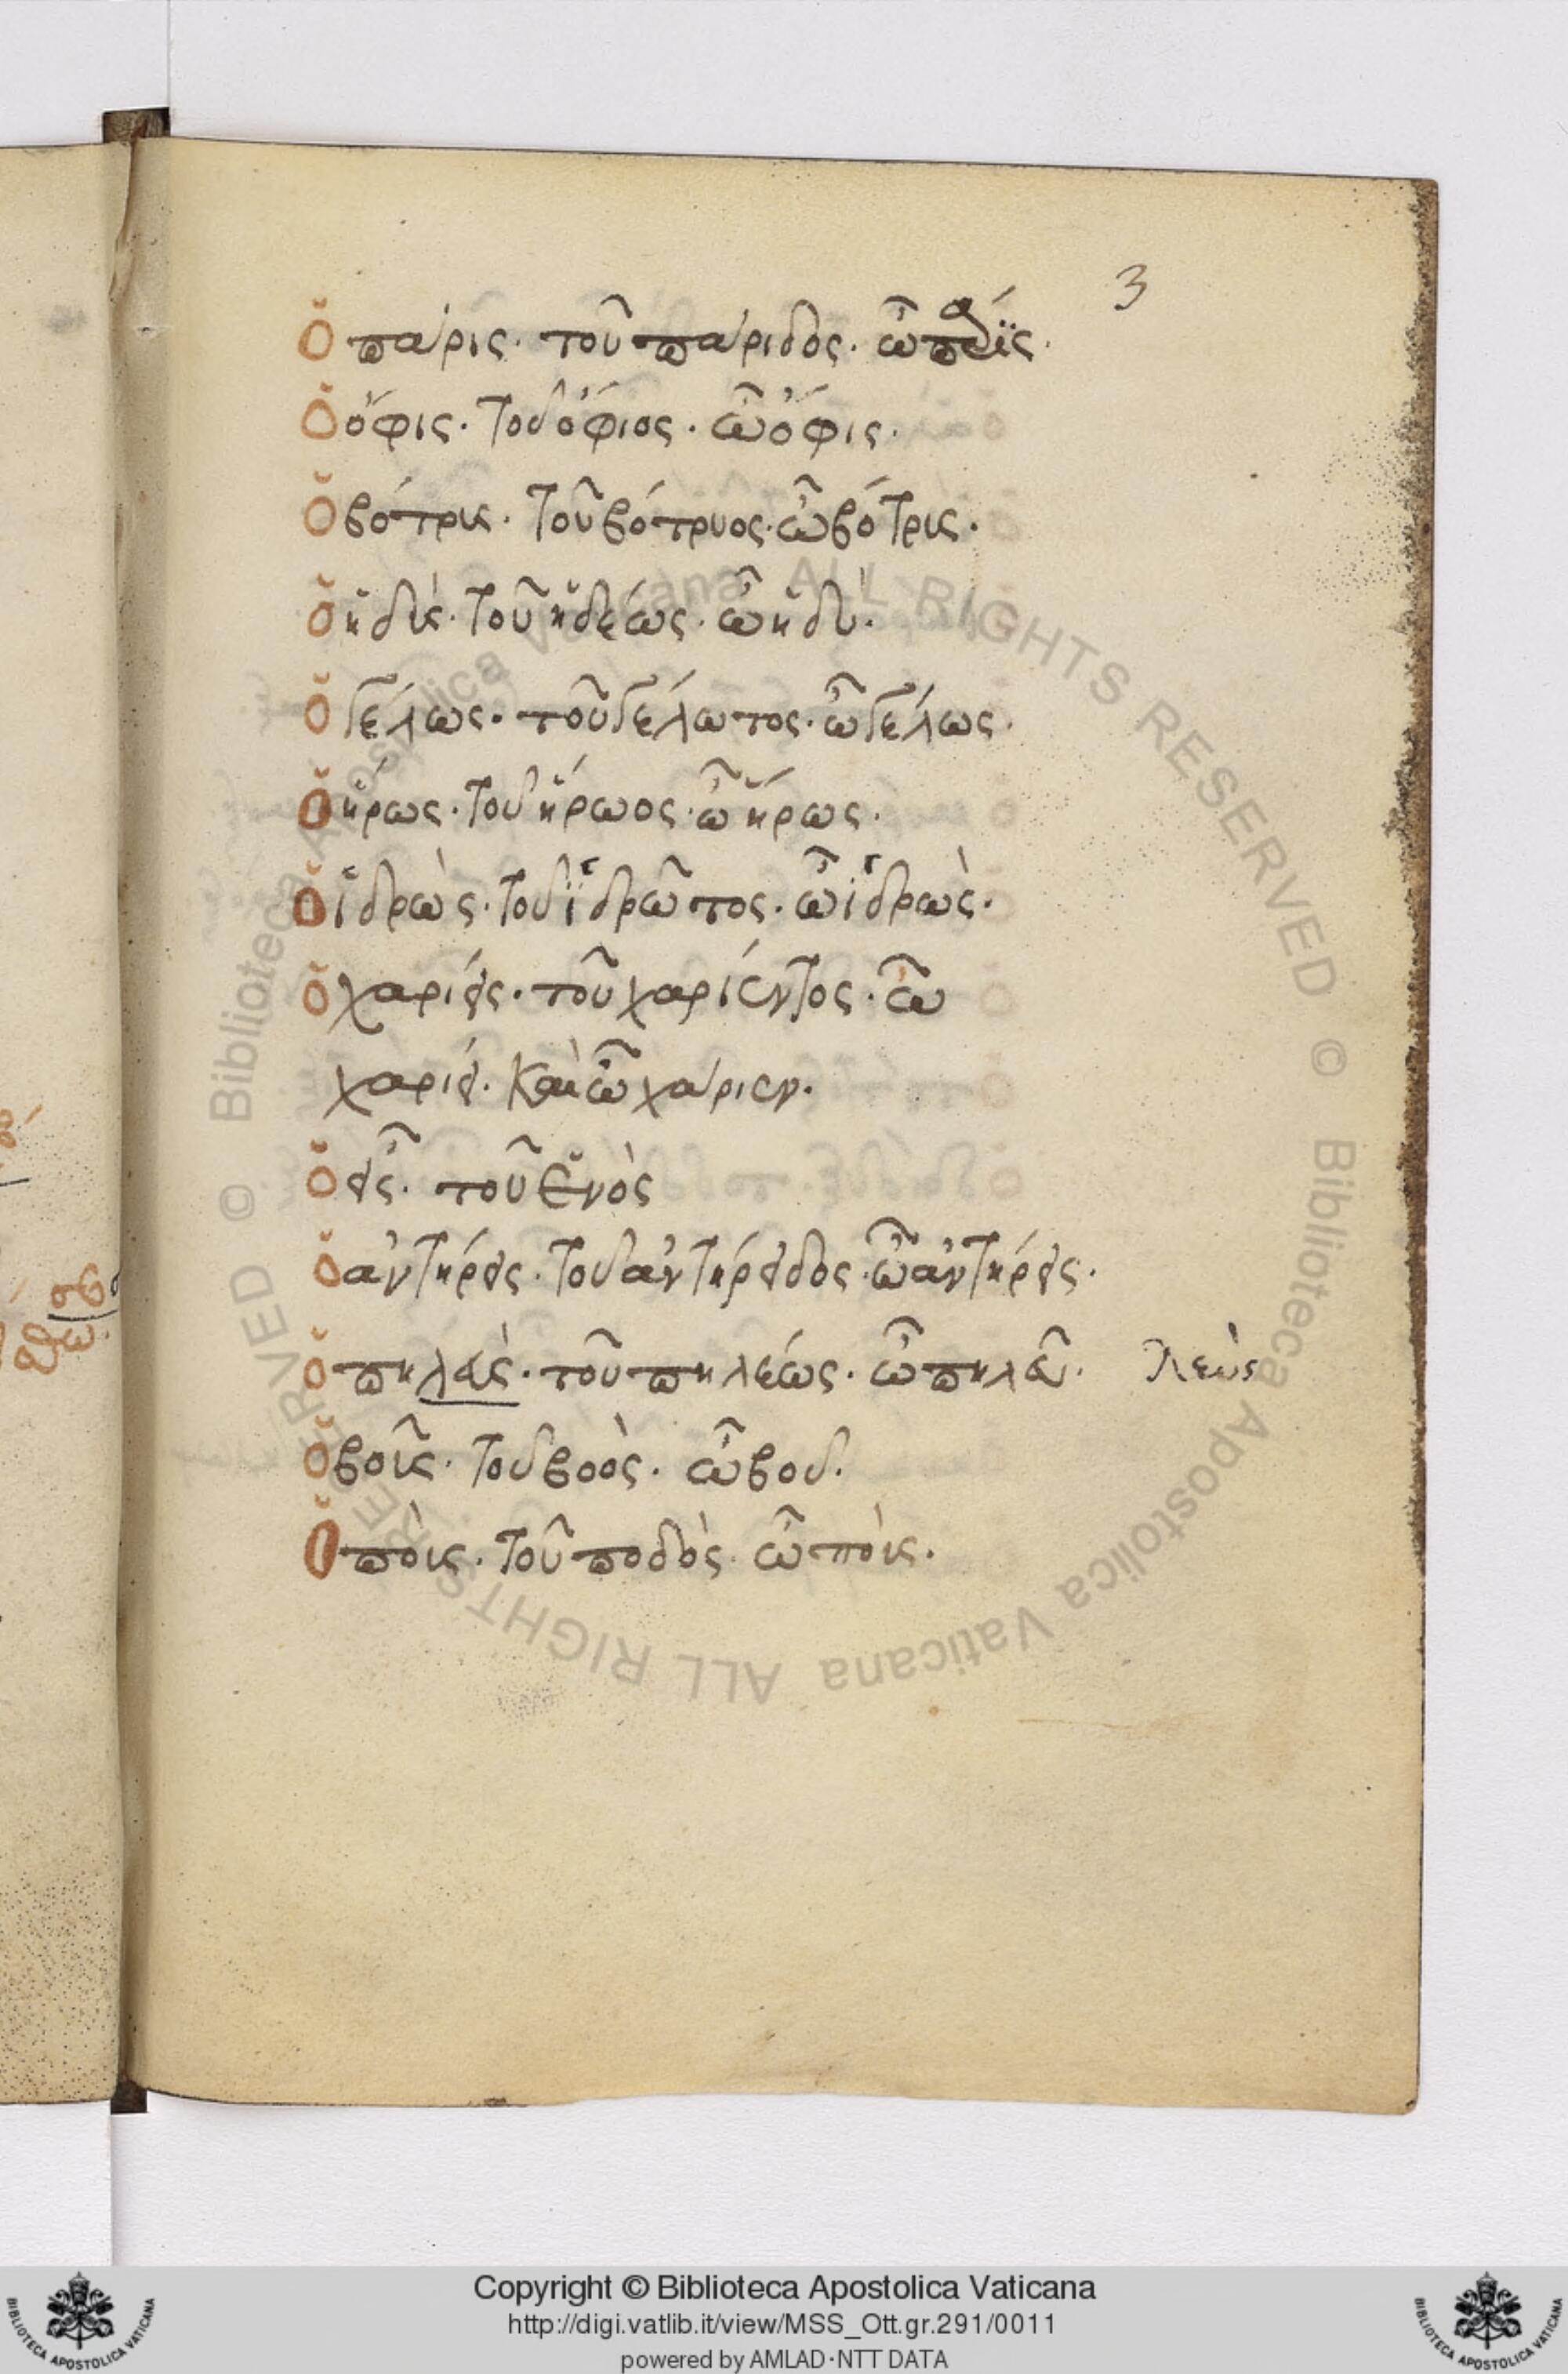 3
Ὁ πάρις· τοῦ πάριδος· ὦ πάϊς·
Ὁ ὄφις· τοῦ ὄφιος· ὦ ὄφις·
Ὁ βότρυς· τοῦ βότρυος· ὦ βότρυς·
Ὁ ἡδὺς· τοῦ ἡδέως· ὦ ἡδὺ·
Ὁ γέλως· τοῦ γέλωτος· ὦ γέλως·
Ὁ ἥρως· τοῦ ἥρωος· ὦ ἥρως·
Ὁ ἱδρὼς· τοῦ ἱδρῶτος· ὦ ἱδρὼς·
Ὁ χαρίεις· τοῦ χαρίεντος· ὦ
χαρίει· καὶ ὦ χάριεν·
Ὁ εἷς· τοῦ ἑνὸς
Ὁ ἀντήρεις· τοῦ ἀντήρειδος· ὦ ἀντήρεις·
Ὁ πηλεὺς· τοῦ πηλέως· ὦ πηλεῦ· λεὺς
Ὁ βοῦς· τοῦ βοὸς· ὦ βοῦ·
Ὁ ποὺς· τοῦ ποδὸς· ὦ ποὺς·
© Biblioteca Apostolica Vaticana ALL RIGHTS RESERVED © Biblioteca Apostolica Vaticana ALL RIGHTS RESERVED
Copyright © Biblioteca Apostolica Vaticana
http://digi.vatlib.it/view/MSS_Ott.gr.291/0011
powered by AMLAD·NTT DATA
BIBLIOTECA APOSTOLICA VATICANA
BIBLIOTECA APOSTOLICA VATICANA